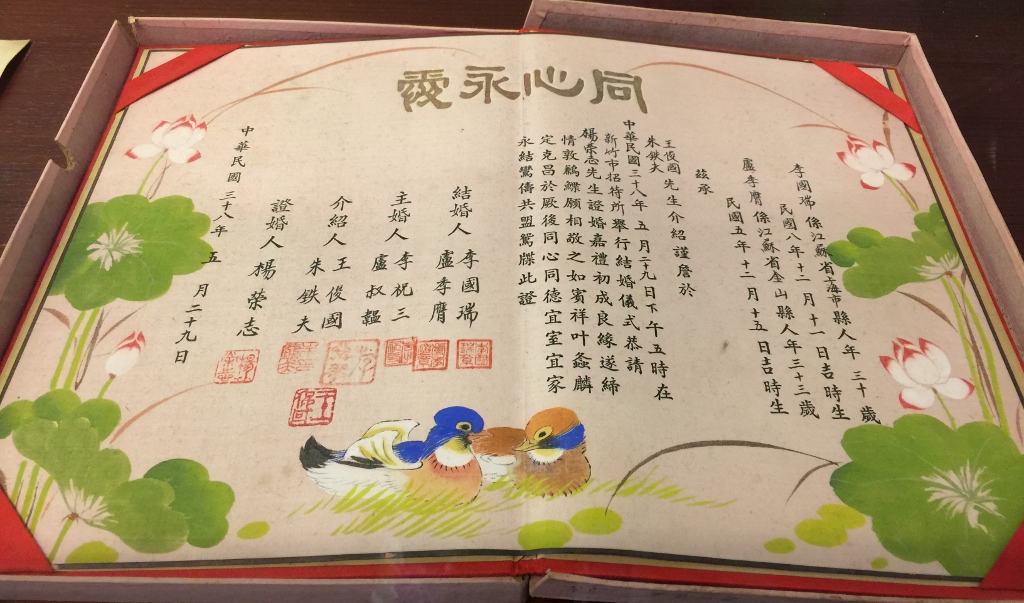 同心永愛
李國瑞 係江蘇省上海市縣人年三十歲
民國八年十二月十一日吉時生
盧季膺 係江蘇省金山縣人年三十三歲
民國五年十二月十五日吉時生
茲承
王俊國 先生介紹謹詹於
朱鉄夫
中華民國三十八年五月二十九日下午五時在
新竹市招待所舉行結婚儀式恭請
楊榮志先生證婚嘉禮初成良緣遂締
情敦鶼鰈願相敬之如賓祥叶螽麟
定克昌於厥後同心同德宜室宜家
永結鸞儔共盟鴛牒此證
結婚人 李國瑞
盧季膺
主婚人 李祝三
盧叔韞
介紹人 王俊國
朱鉄夫
證婚人 楊榮志
中華民國三十八年五月二十九日